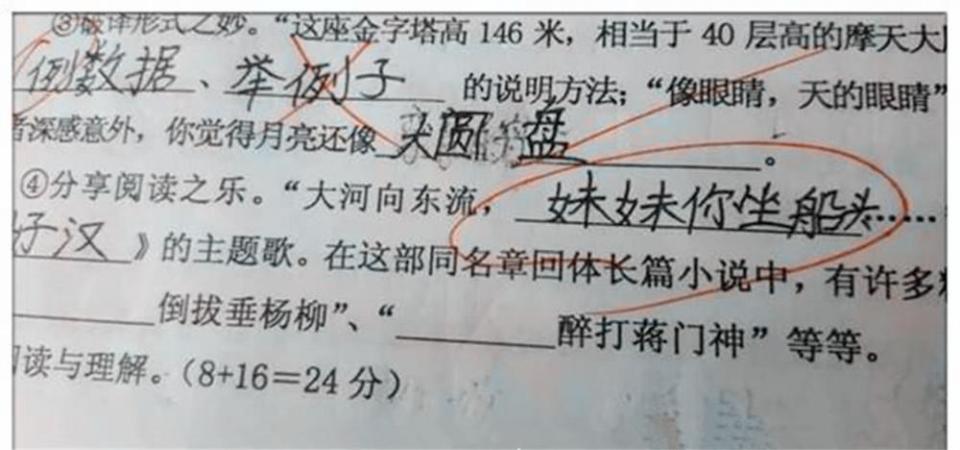 ③破译形式之妙。“这座金字塔高 146 米，相当于 40 层高的摩天大
例数据、举例子 的说明方法；“像眼睛，天的眼睛”
者深感意外，你觉得月亮还像 大圆 盘 。
④分享阅读之乐。“大河向东流， 妹妹你坐船头……
好汉》的主题歌。在这部同名章回体长篇小说中，有许多
倒拔垂杨柳”、“ 醉打蒋门神”等等。
读与理解。（8+16=24 分）